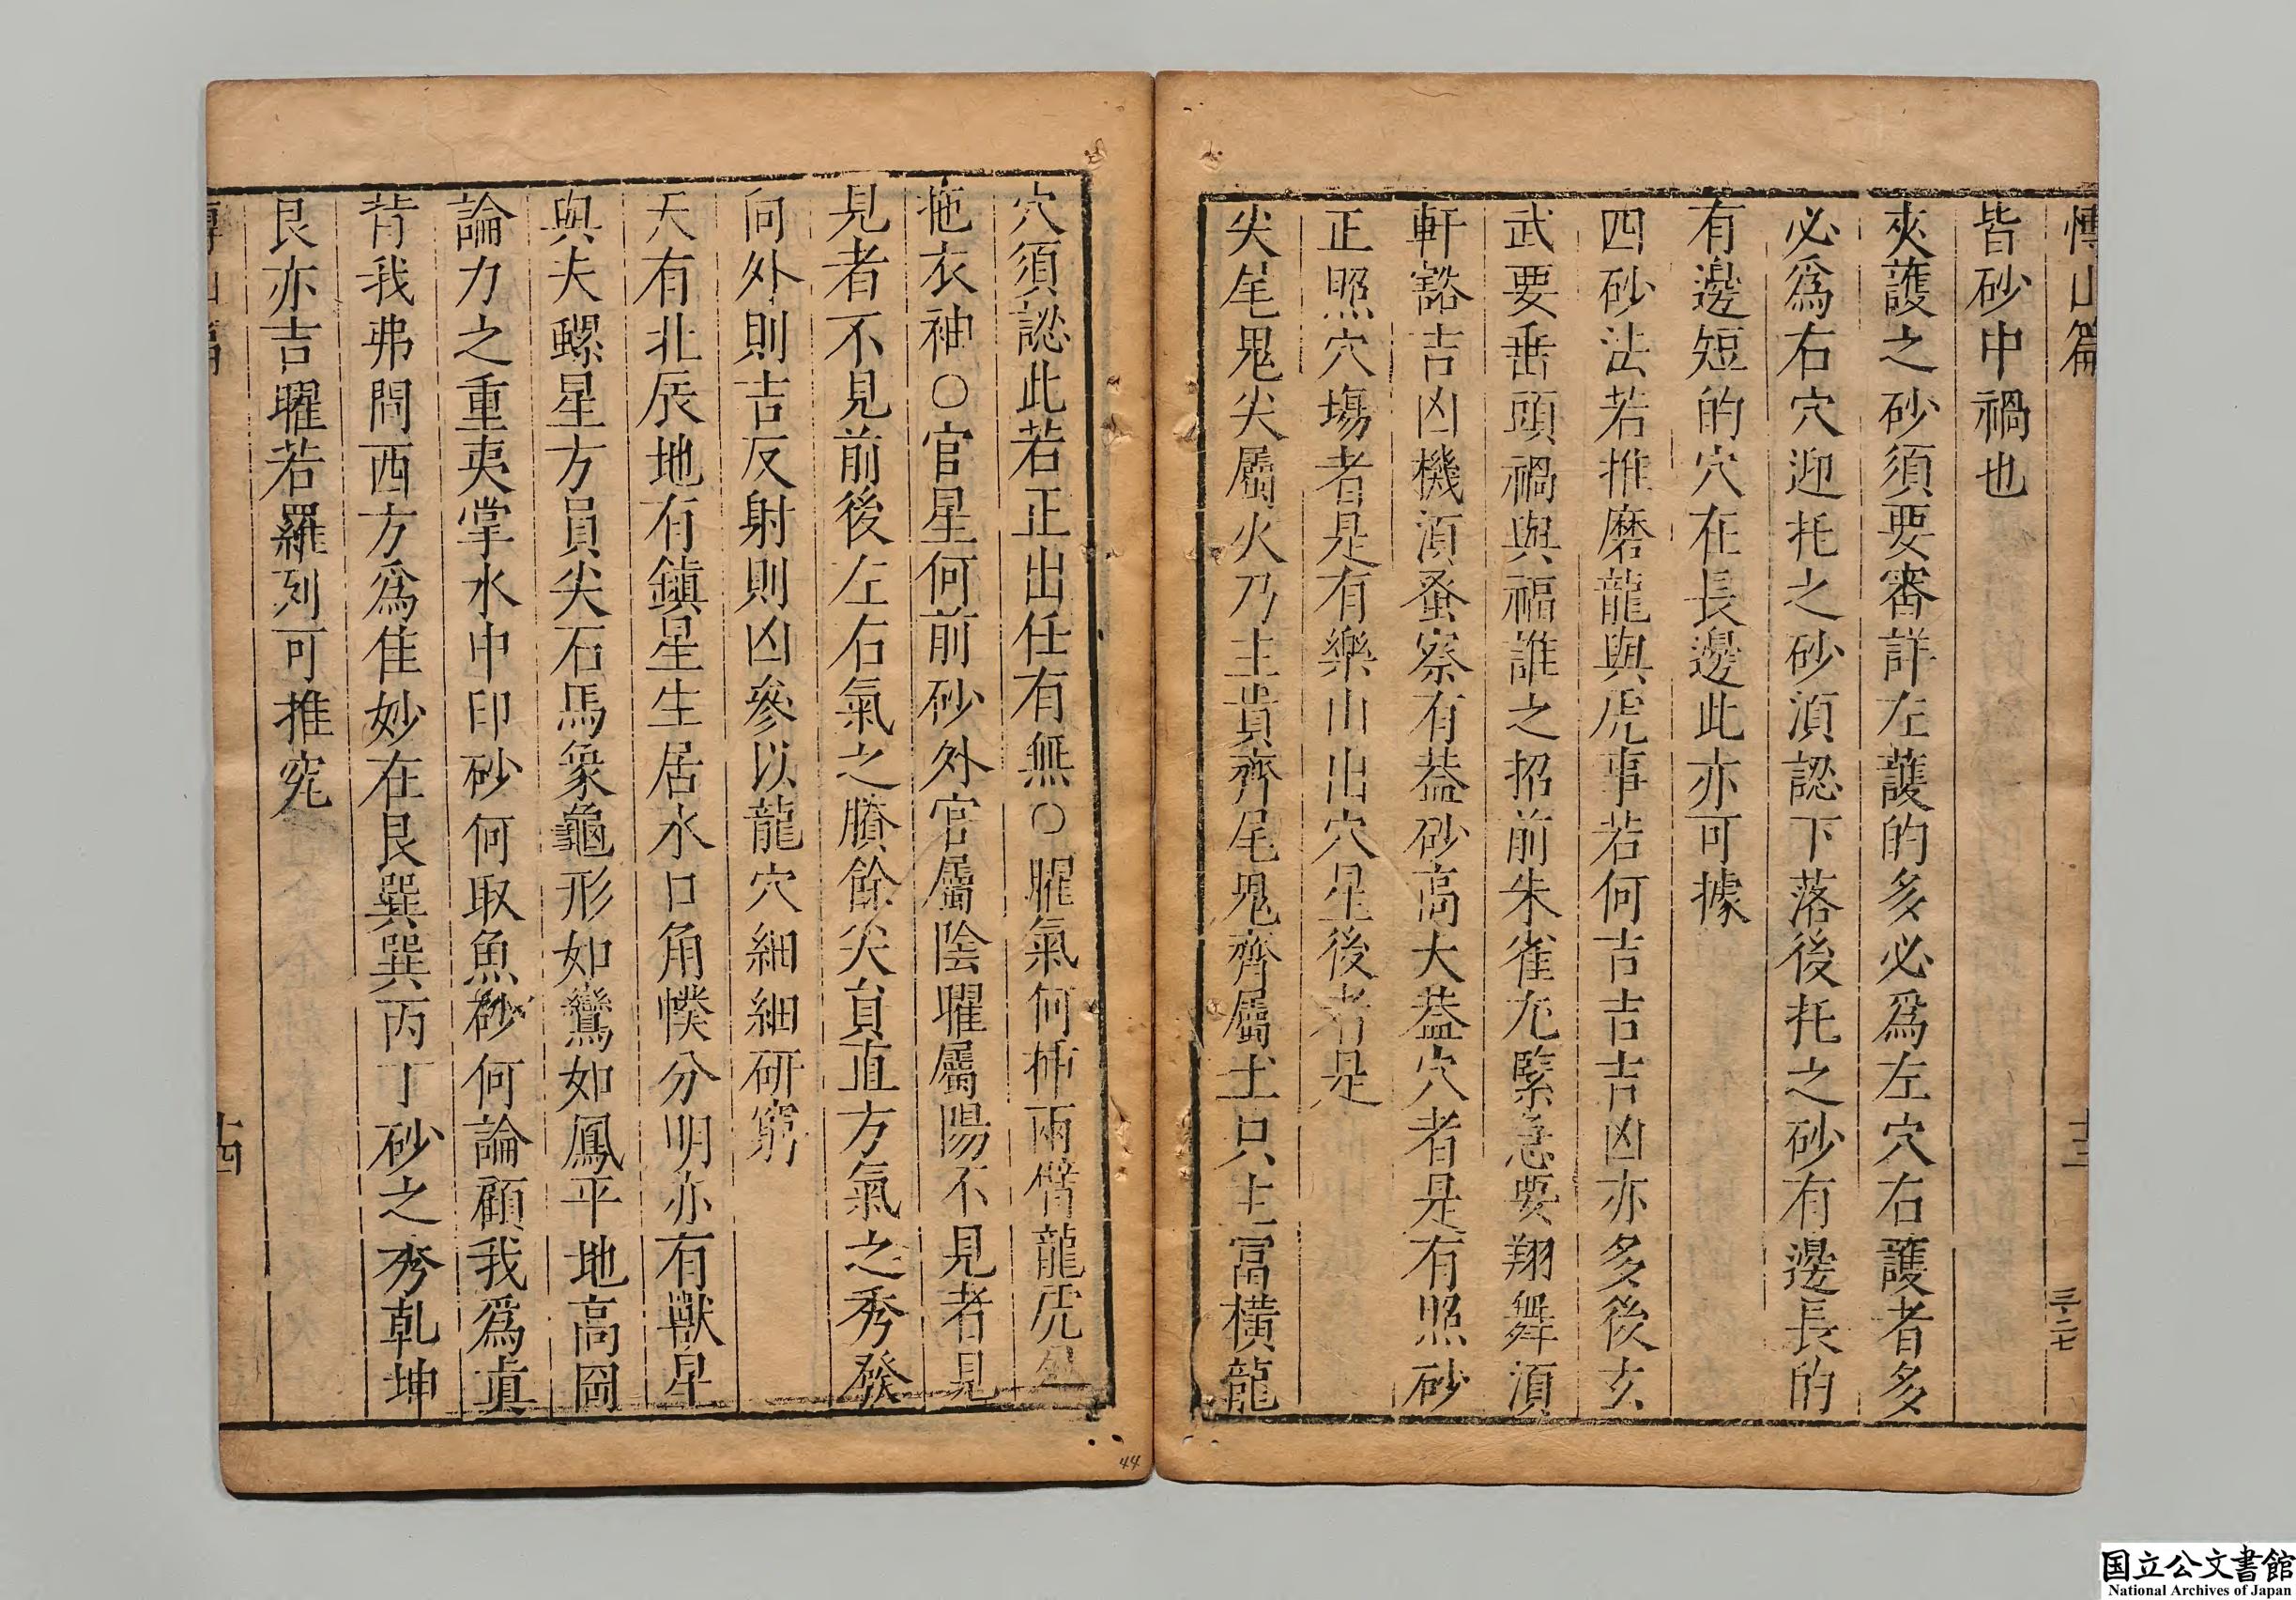 博山篇
十三
三ノ二七
皆砂中禍也
夾護之砂須要審詳左護的多必爲左穴右護者多
必爲右穴迎托之砂湏認下落後托之砂有邊長的
有邊短的穴在長邊此亦可據
四砂法若推磨龍與虎事若何吉吉吉凶亦多後玄
武要垂頭禍與福誰之招前朱雀尤緊急要翔舞湏
軒豁吉凶機湏蚤察有葢砂高大葢穴者是有照砂
正照穴塲者是有樂山出穴星後者是
尖尾鬼尖屬火乃主貴齊尾鬼齊屬土只主富橫龍
穴須認此若正出任有無○曜氣何拖兩臂龍虎外
拖衣袖○官星何前砂外官屬陰曜屬陽不見者見
見者不見前後左右氣之賸餘尖員直方氣之秀發
向外則吉反射則凶參以龍穴細細研窮
天有北辰地有鎮星生居水口角幞分明亦有獸星
與夫螺星方員尖石馬象龜形如鸞如鳳平地高岡
論力之重夷掌水中印砂何取魚砂何論顧我爲真
背我弗問西方爲佳妙在艮巽巽丙丁砂之秀乾坤
艮亦吉曜若羅列可推究
博山篇
十四
44
国立公文書館
National Archives of Japan